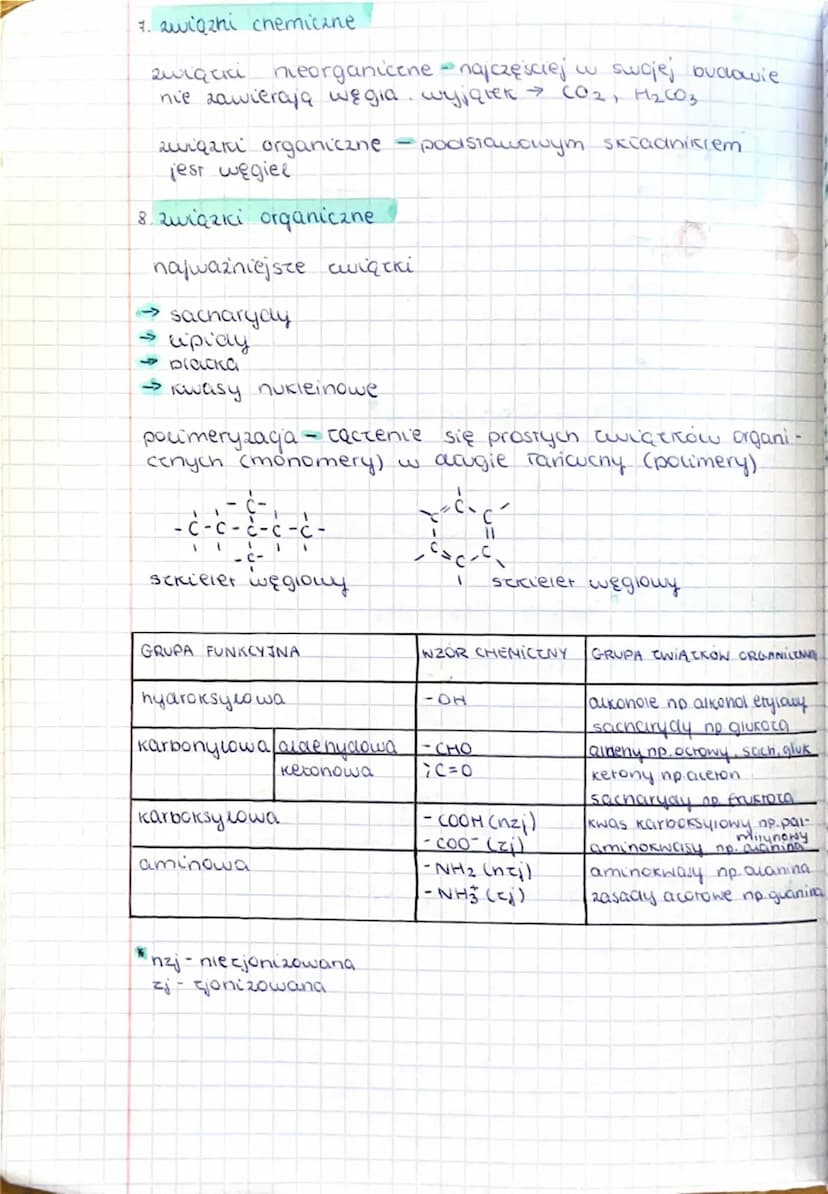 7. związki chemiczne
związki nieorganiczne - najczęściej w swojej budowie
nie zawierają węgla. wyjątek → CO2, H2CO3
związki organiczne - podstawowym składnikiem
jest węgiel
8. związki organiczne
najważniejsze związki
→ sacharydy
→ lipidy
→ białka
→ kwasy nukleinowe
polimeryzacja - łączenie się prostych związków organi-
cznych (monomery) w długie łańcuchy (polimery)
-C-
-C-C-C-C-C-
-C-
C C C C C C
szkielet węglowy szkielet węglowy
GRUPA FUNKCYJNA WZÓR CHEMICZNY GRUPA ZWIĄZKÓW ORGANICZNYCH
hydroksylowa -OH alkohole np alkohol etylowy
sacharydy np glukoza
karbonylowa aldehydowa -CHO aldehy np. octowy, sach. gluk
ketonowa >C=O ketony np. aceton
sacharydy np fruktoza
karboksylowa -COOH (nzj) kwas karboksylowy np. pal-
mitynowy
-COO⁻ (zj) aminokwasy np. alanina
aminowa -NH2 (nzj) aminokwasy np. alanina
-NH3⁺ (zj) zasady azotowe np. guanina
* nzj - niezjonizowana
zj - zjonizowana